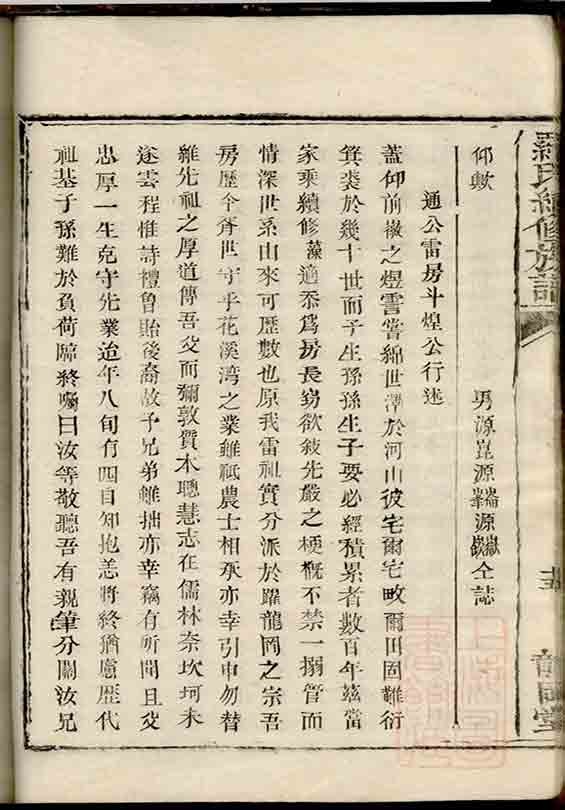 羅氏續修族譜
仰歟
男源崑源源仝誌
通公雷房斗煌公行述
蓋仰前徽之煜雲嘗綿世澤於河山彼宅爾宅畋爾田固難衍
箕裘於幾十世而子生孫孫生子要必經積累者數百年茲當
家乘續修藻適忝爲房長竊欲敍先嚴之梗概不禁一搦管而
情深世系由來可歷數也原我雷祖實分派於躍龍岡之宗吾
房歷今奇世守乎花溪湾之業雖祇農士相承亦幸引申勿替
維先祖之厚道傳吾父而彌敦質本聰慧志在儒林奈坎坷未
遂雲程惟詩禮魯貽後裔故予兄弟雖拙亦幸竊有所聞且父
忠厚一生克守先業迨年八旬有四自知抱恙將終猶慮歷代
祖基子孫難於負荷臨終囑曰汝等敬聽吾有親筆分關汝兄